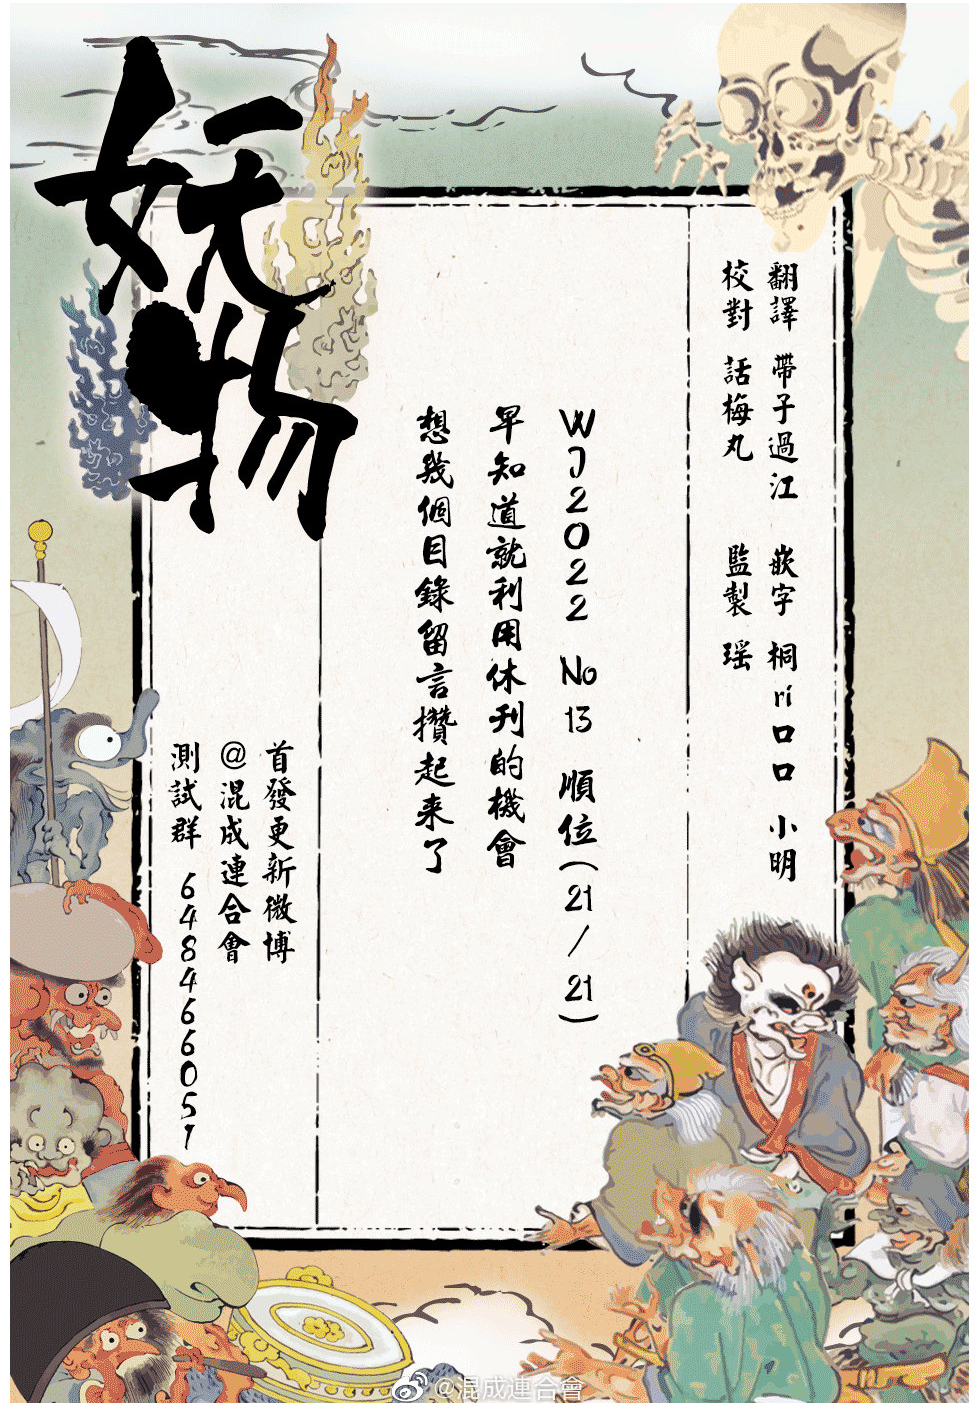 妖物
翻譯 帶子過江 嵌字 桐ri口口 小明
校對 話梅丸 監製 瑶
WJ2022 No13 順位(21/21)
早知道就利用休刊的機會
想幾個目錄留言攢起来了
首發更新微博
@混成連合會
測試群 648466051
@混成連合會